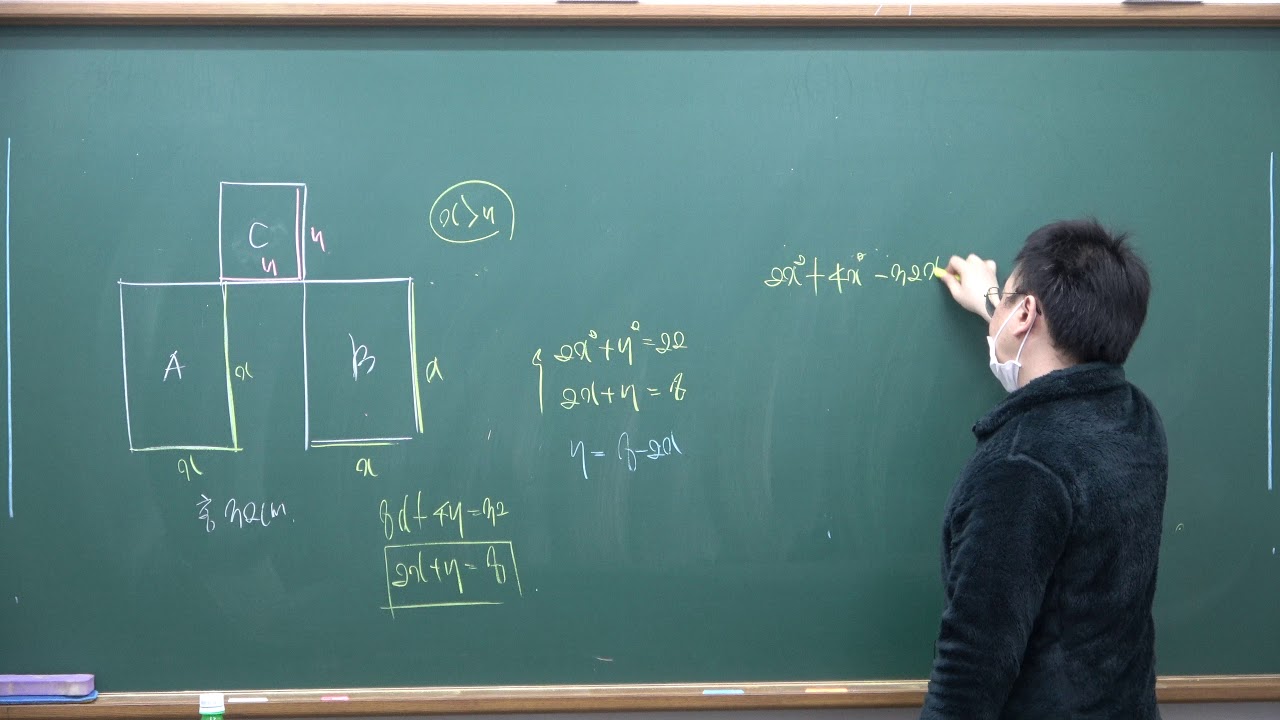 C
y
y
x>y
A
x
B
x
x
x
총 32cm.
8x+4y=32
2x+y=8
2x²+y²=22
2x+y=8
y=8-2x
2x²+4x²-32x